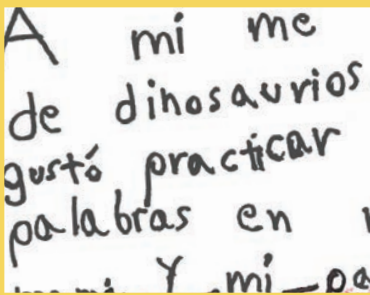 A mi me
de dinosaurios
gustó practicar
palabras en
Y mi